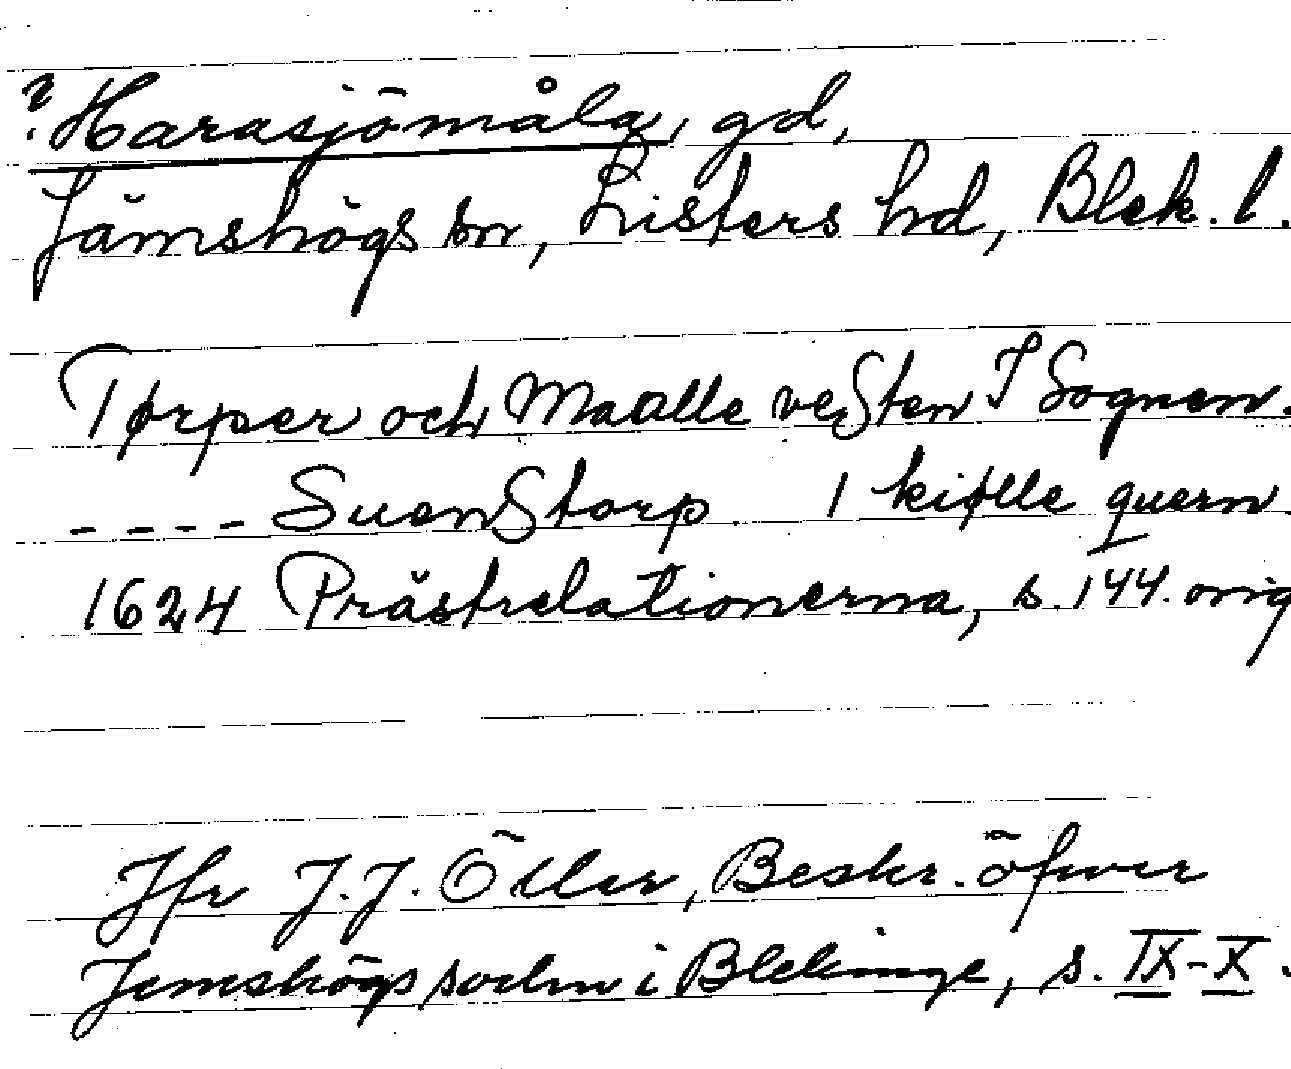 ? Harasjömåla, gd,
Jämshögs sn, Listers hd, Blek. l.
Tørper och Maalle vesten I Sognen.
---- SuenStorp 1 kiølle quern.
1624 Prästrelationerna, s. 144. orig
Jfr J. J. Öller, Beskr. öfwer
Jemshögs sockn i Blekinge, s. IX-X.